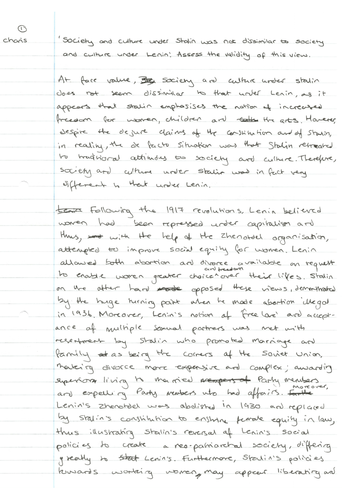 ①
Charis
'Society and culture under Stalin was not dissimilar to society
and culture under Lenin'. Assess the validity of this view.
At face value, society and culture under Stalin
does not seem dissimilar to that under Lenin, as it
appears that Stalin emphasises the notion of increased
freedom for women, children and the arts. However,
despite the de jure claims of the constitution and of Stalin,
in reality, the de facto situation was that Stalin retreated
to traditional attitudes to society and culture. Therefore,
society and culture under Stalin was in fact very
different to that under Lenin.
Following the 1917 revolutions, Lenin believed
women had been repressed under capitalism and
thus, with the help of the Zhenotdel organisation,
attempted to improve social equity for women. Lenin
allowed both abortion and divorce available on request
to enable women greater choice and freedom over their lifes. Stalin
on the other hand opposed these views, demonstrated
by the huge turning point when he made abortion illegal
in 1936. Moreover, Lenin's notion of 'free love' and accept-
ance of multiple sexual partners was met with
resentment by Stalin who promoted marriage and
family as being the corners of the Soviet Union,
making divorce more expensive and complex; awarding
living to married Party members
and expelling Party members who had affairs. Moreover,
Lenin's Zhenotdel was abolished in 1930 and replaced
by Stalin's constitution to enshrine female equity in law,
thus illustrating Stalin's reversal of Lenin's social
policies to create a neo-patriarchal society, differing
greatly to Lenin's. Furthermore, Stalin's policies
towards working women, may appear liberating and